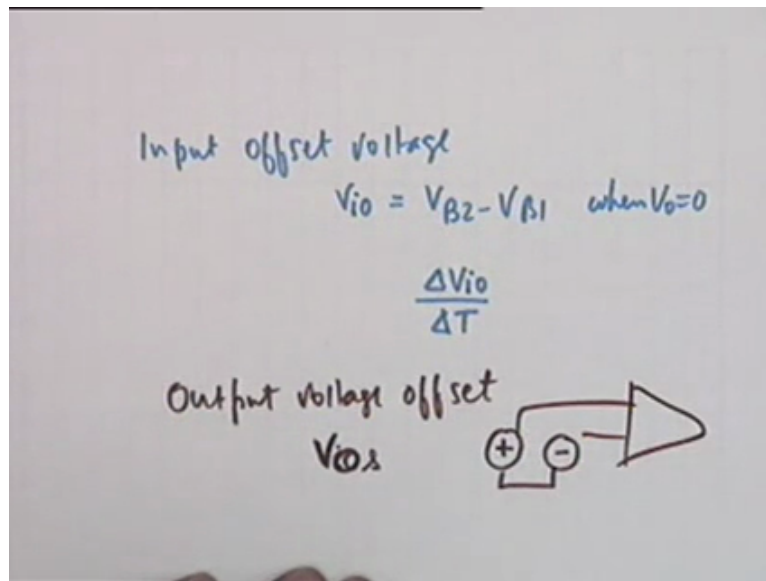 Input offset voltage
Vio = VB2 - VB1 when Vo=0
ΔVio
ΔT
Output voltage offset
Vios
+ -